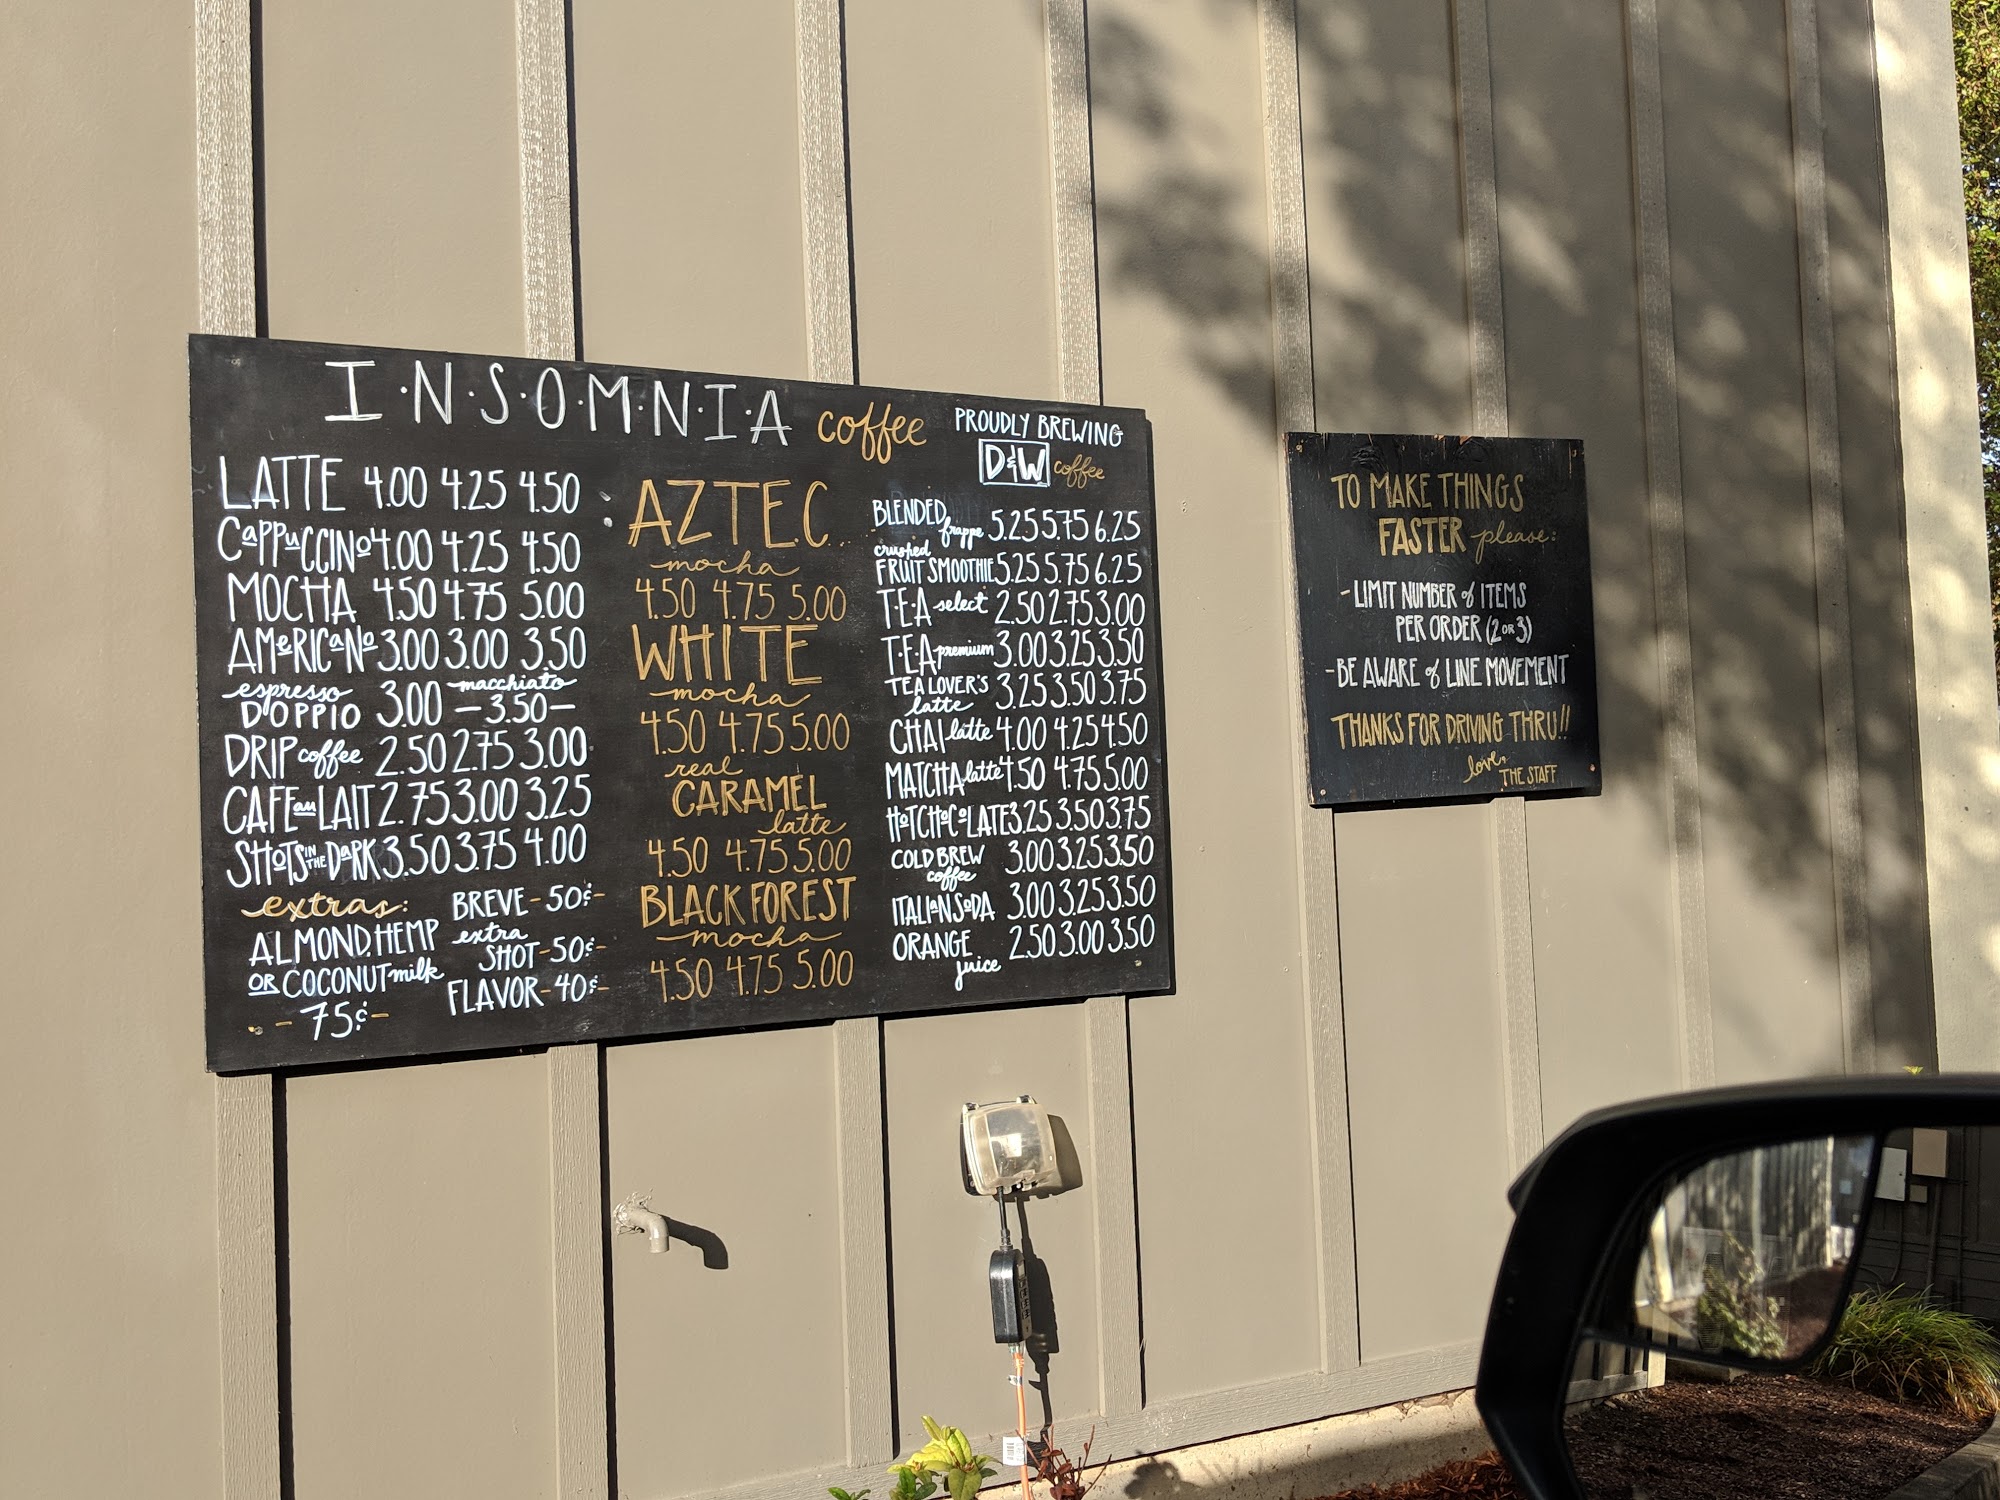 I·N·S·O·M·N·I·A coffee
PROUDLY BREWING
D&W coffee
LATTE 4.00 4.25 4.50
CAPPUCCINO 4.00 4.25 4.50
MOCHA 4.50 4.75 5.00
AMERICANO 3.00 3.00 3.50
espresso DOPPIO 3.00 macchiato -3.50-
DRIP coffee 2.50 2.75 3.00
CAFE au LAIT 2.75 3.00 3.25
SHOTS IN THE DARK 3.50 3.75 4.00
extras:
ALMOND, HEMP
OR COCONUT milk
-75¢-
BREVE-50¢-
extra
SHOT-50¢-
FLAVOR-40¢-
AZTEC
mocha
4.50 4.75 5.00
WHITE
mocha
4.50 4.75 5.00
real
CARAMEL
latte
4.50 4.75 5.00
BLACK FOREST
mocha
4.50 4.75 5.00
BLENDED frappe 5.25 5.75 6.25
crushed
FRUIT SMOOTHIE 5.25 5.75 6.25
T·E·A select 2.50 2.75 3.00
T·E·A premium 3.00 3.25 3.50
TEA LOVER'S latte 3.25 3.50 3.75
CHAI latte 4.00 4.25 4.50
MATCHA latte 4.50 4.75 5.00
HOT CHOCOLATE 3.25 3.50 3.75
COLD BREW coffee 3.00 3.25 3.50
ITALIAN SODA 3.00 3.25 3.50
ORANGE juice 2.50 3.00 3.50
TO MAKE THINGS
FASTER please:
-LIMIT NUMBER of ITEMS
PER ORDER (2 OR 3)
-BE AWARE of LINE MOVEMENT
THANKS FOR DRIVING THRU!!
love,
THE STAFF